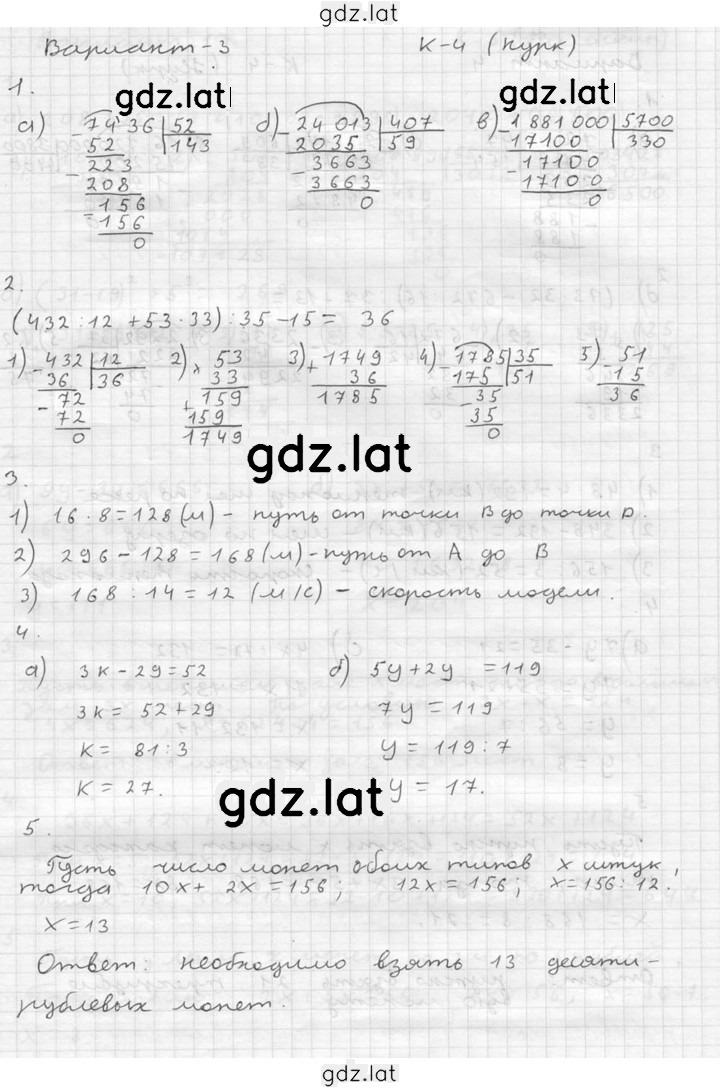 gdz.lat
Вариант-3 К-4 (Нурк)
1.
gdz.lat gdz.lat
а) -7436 |52 б) -24013 |407 в) -1881000 |5700
52 143 2035 59 17100 330
-223 -3663 -17100
208 3663 17100
156 0 0
-156
0
2.
(432:12 +53·33):35-15= 36
1) -432 |12 2) × 53 3) + 1749 4) -1785 |35 5) 51
36 36 33 36 175 51 15
-72 + 159 1785 -35 36
72 159 35
0 1749 0
gdz.lat
3.
1) 16·8=128(м) - путь от точки В до точки D.
2) 296-128=168(м)-путь от А до В
3) 168:14=12 (м/с) - скорость модели.
4.
а) 3к-29=52 б) 5у+2у =119
3к= 52+29 7у=119
к= 81:3 у= 119:7
к= 27. у= 17.
gdz.lat
5.
Пусть число монет обоих типов х штук,
тогда 10х+ 2х=156; 12х=156; х=156:12.
х=13
Ответ: необходимо взять 13 десяти-
рублевых монет.
gdz.lat